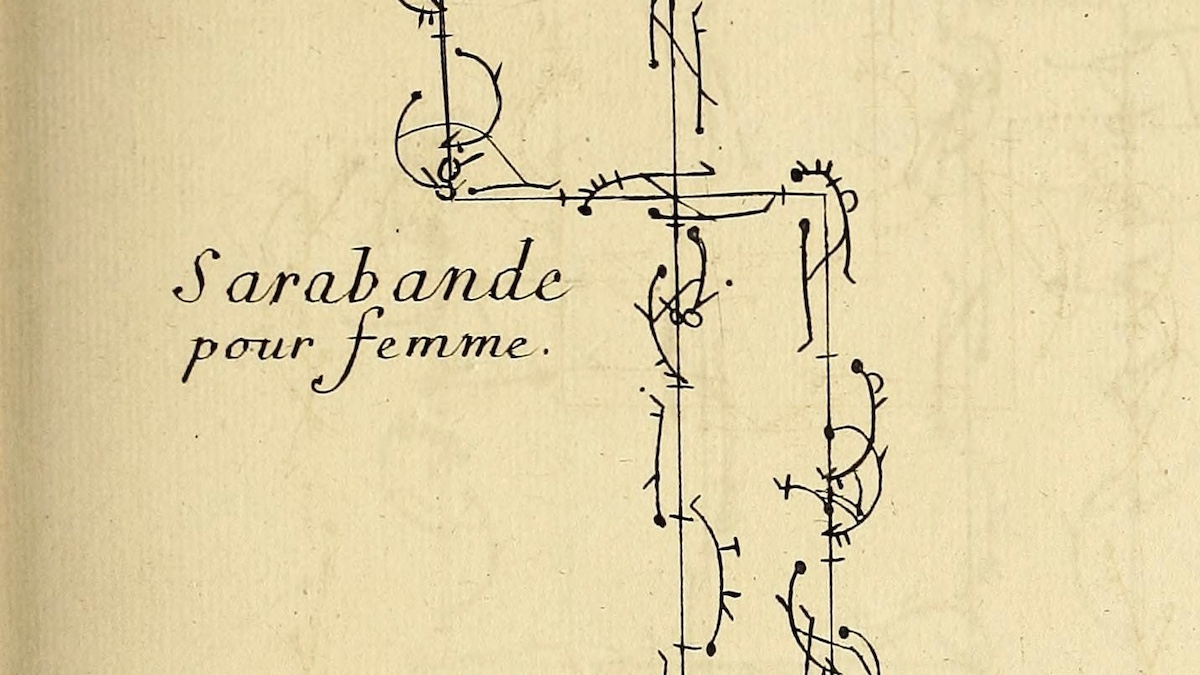 Sarabande
pour femme.